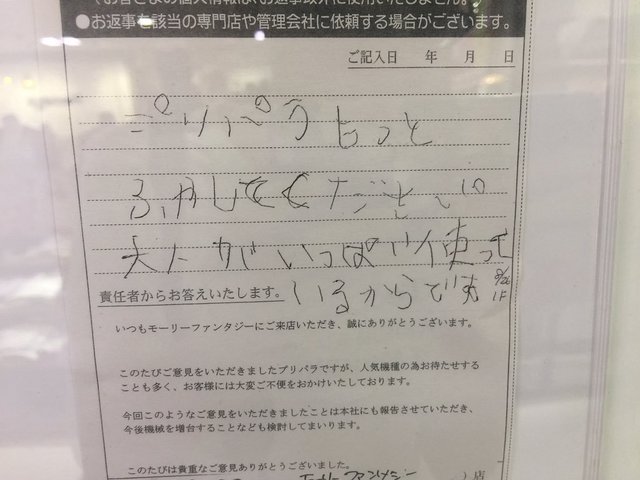 ●お返事を該当の専門店や管理会社に依頼する場合がございます。
ご記入日 年 月 日
プリパラもっと
ふやしてください
大人がいっぱい使って
いるからです
9/26
1F
責任者からお答えいたします。
いつもモーリーファンタジーにご来店いただき、誠にありがとうございます。
このたびご意見をいただきましたプリパラですが、人気機種の為お待たせする
ことも多く、お客様には大変ご不便をおかけいたしております。
今回このようなご意見をいただきましたことは本社にも報告させていただき、
今後機械を増台することなども検討してまいります。
このたびは貴重なご意見ありがとうございました。